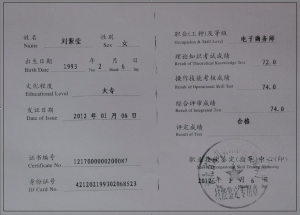 姓名 刘 性别 女
Name Sex
出生日期 1993 年 2 月 日
Birth Date
文化程度 大专
Educational Level
发证日期 2012 年 01 月 06 日
Date of Issue
证书编号 1217000000200087
Certificate No.
身份证号 421202199302068523
ID Card No.
职业(工种)及等级 电子商务师
Occupation & Skill Level
理论知识考试成绩 72.0
Result of Theoretical Knowledge Test
操作技能考核成绩 74.0
Result of Operational Skill Test
综合评审成绩 74.0
Result of Integrated Test
评定成绩 合格
Result of Test
职业技能鉴定(指导)中心(印)
Occupational Skill Testing Authority
2012 年 月 6 日